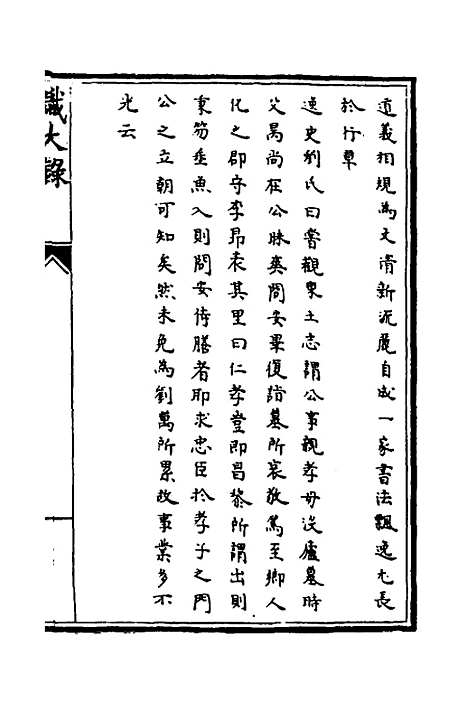 道義相規為文清新流麗自成一家書法飄逸尤長
於行草
逸史劉氏曰嘗觀眾士志謂公事親孝母沒廬墓時
父昺尚在公昧爽問安畢復詣墓所哀敬篤至鄉人
化之郡守李昂表其里曰仁孝豈即昌黎所謂出則
秉笏垂魚入則問安侍膳者耶求忠臣於孝子之門
公之立朝可知矣然未免為劉萬所累故事業多不
光云
識大錄